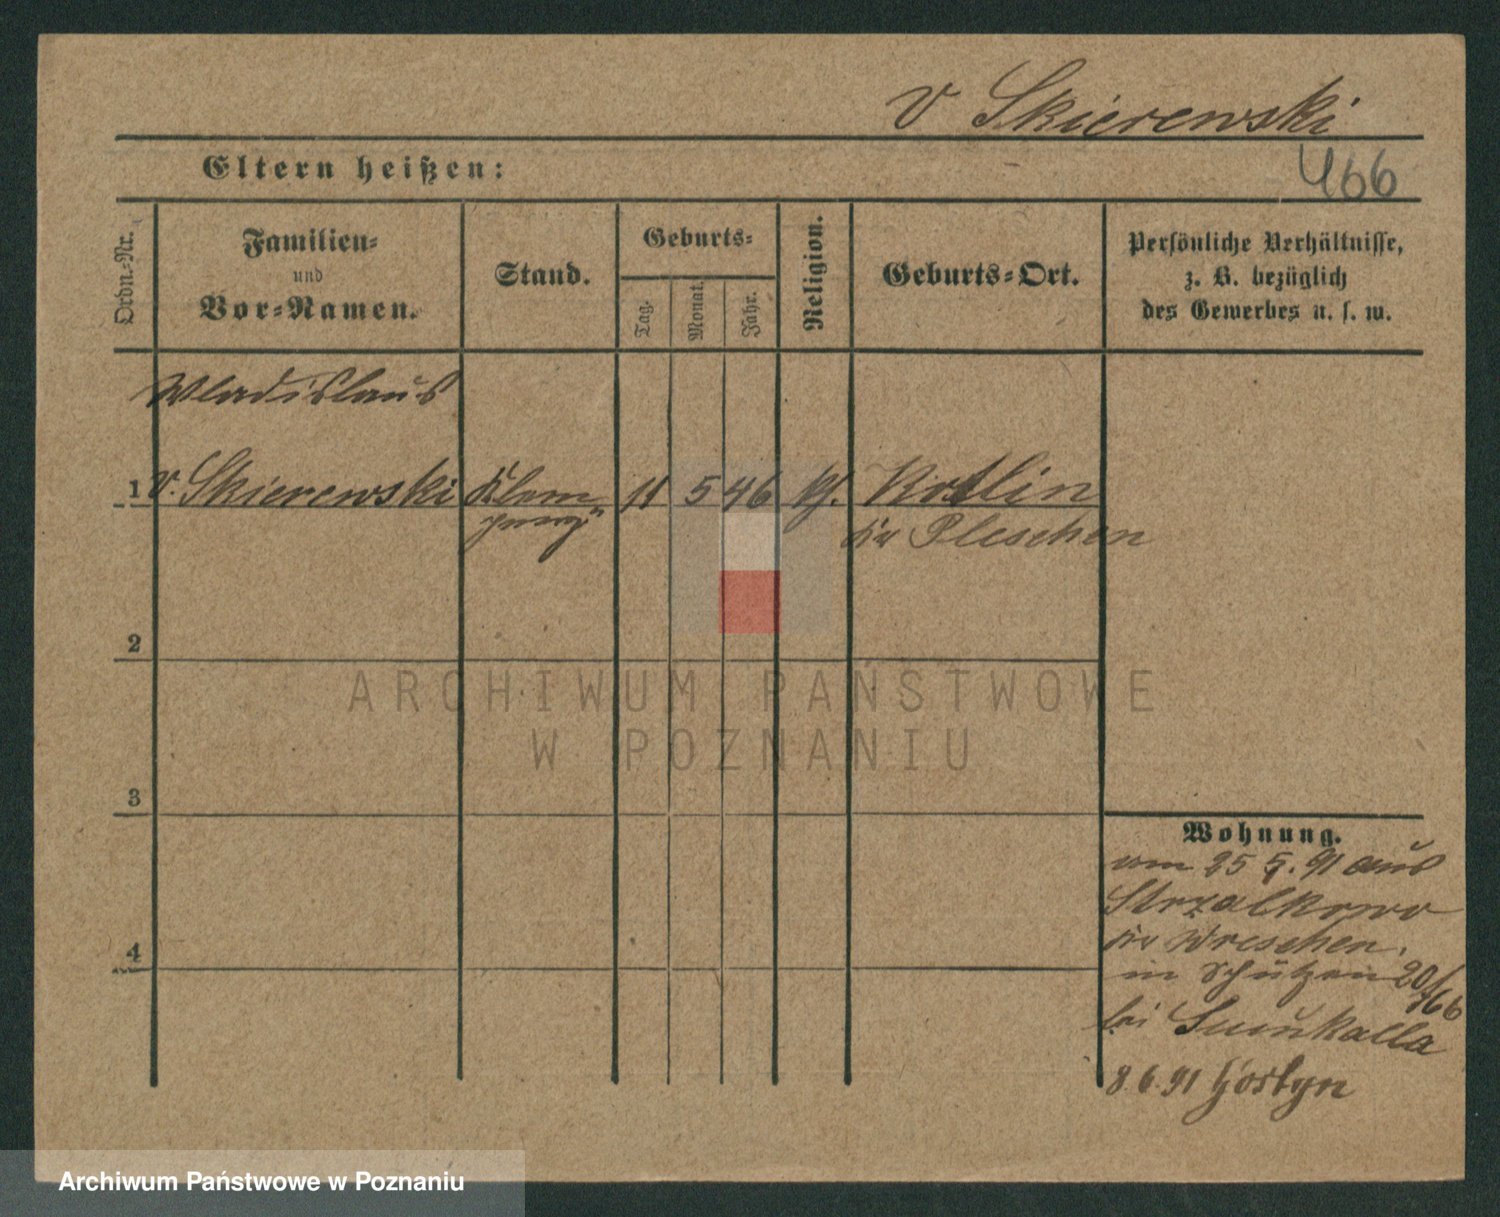 v Skierewski
Eltern heißen:
466
Ordn.-Nr.
Familien-
und
Vor-Namen.
Stand.
Geburts-
Tag.
Monat.
Jahr.
Religion.
Geburts-Ort.
Persönliche Verhältnisse,
z. B. bezüglich
des Gewerbes u. s. w.
Wladislaus
1 v. Skierewski 11 5 46 Kotlin
Kr Pleschen
2
3
4
Wohnung.
am 25 5. 91 aus
Strzalkowo
Kr Wreschen.
in Schützen 20/
466
bei
8.6.91 Gostyn
ARCHIWUM PAŃSTWOWE
W POZNANIU
Archiwum Państwowe w Poznaniu